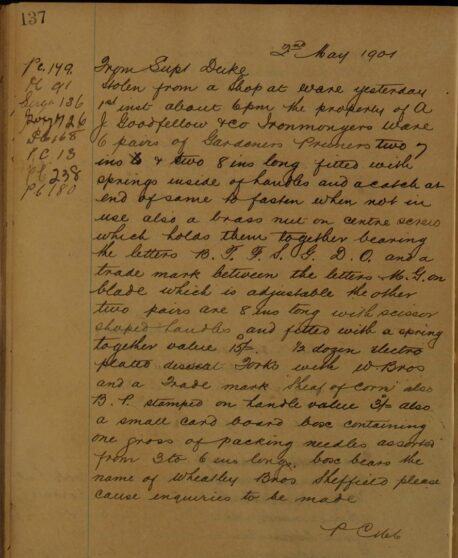 137
2nd May 1901
Pc. 149
Pc 91
Serg 136
Serg 126
Pc 168
P.C. 13
Pc 238
Pc 180
From Supt Duke
Stolen from a shop at Ware yesterday
1st inst about 6pm the property of A
J Goodfellow & Co Ironmongers Ware
6 pairs of Gardeners Pruners two 7
ins & two 8 ins long fitted with
springs inside of handles and a catch at
end of same to fasten when not in
use also a brass nut on centre screw
which holds them together bearing
the letters B. T. F. S. G. D. O. and a
trade mark between the letters M. G. on
blade which is adjustable the other
two pairs are 8 ins long with scissor
shaped handles and fitted with a spring
together value 15/- ½ dozen Electro
plated dessert Forks with W Bros
and a Trade mark Sheaf of Corn also
B. P. stamped on handle value 3/- also
a small card board box containing
one gross of packing needles assorted
from 3 to 6 ins long, box bears the
name of Wheatley Bros Sheffield please
cause enquiries to be made